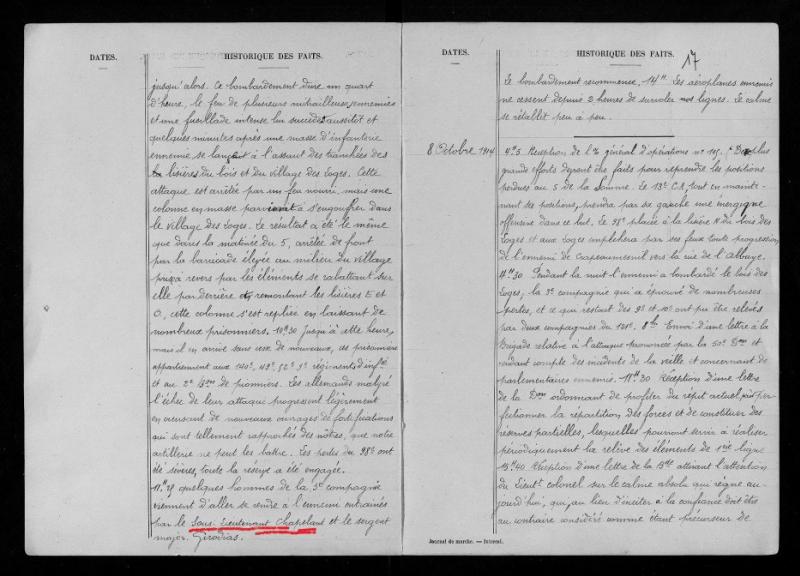 DATES.
HISTORIQUE DES FAITS.
jusqu'alors. Ce bombardement dure un quart
d'heure, le feu de plusieurs mitrailleuses ennemies
et une fusillade intense lui succèdent aussitôt et
quelques minutes après une masse d'infanterie
ennemie se lançait à l'assaut des tranchées des
lisières du bois et du village des Loges. Cette
attaque est arrêtée par un feu nourri mais une
colonne en masse parvient à s'engouffrer dans
le village des Loges. Le résultat a été le même
que dans la matinée du 5, arrêtée de front
par la barricade élevée au milieu du village
prise à revers par les éléments se rabattant sur
elle par derrière en remontant les lisières E et
O, cette colonne s'est repliée en laissant de
nombreux prisonniers. 10h30 Jusqu'à cette heure,
mais il en arrive sans cesse de nouveaux, ces prisonniers
appartiennent aux régiments d'infie
et au 2e Bon de pionniers. Les allemands malgré
l'échec de leur attaque progressent légèrement
en creusant de nouveaux ouvrages de fortifications
qui sont tellement rapprochés des nôtres, que notre
artillerie ne peut les battre. Les pertes du 98e ont
été sévères, toute la réserve a été engagée.
quelques hommes de la 3e compagnie
viennent d'aller se rendre à l'ennemi entrainés
par le Sous-Lieutenant Chapelant et le sergent
major Girodias.
DATES.
HISTORIQUE DES FAITS.
17
Le bombardement recommence. 14h. Les aéroplanes ennemis
ne cessent depuis 2 heures de survoler nos lignes. Le calme
se rétablit peu à peu.
8 Octobre 1914
4h5 Réception de l'O/ général d'opérations no "De plus
grands efforts devront être faits pour reprendre les positions
perdues au S de la Somme. Le 13e C.A, tout en mainte-
nant ses positions, prendra par sa gauche une énergique
offensive dans ce but. Le 98e placé à la lisière N du bois des
Loges et aux Loges empêchera par ses feux toute progression
de l'ennemi de Crapeaumesnil vers la rue de l'Abbaye.
4h30 Pendant la nuit l'ennemi a bombardé le bois des
Loges, la 3e compagnie qui a éprouvé de nombreuses
pertes, et ce qui restait des 9e et 10e ont pu être relevés
par deux compagnies du 121e. 8h Envoi d'une lettre à la
Brigade relative à l'attaque prononcée par la 50e Bde et
rendant compte des incidents de la veille et concernant de
parlementaires ennemis. 11h30 Réception d'une lettre
de la Don ordonnant de profiter du répit actuel, pour per-
fectionner la répartition des forces et de constituer des
réserves partielles, lesquelles pourront servir à réaliser
périodiquement la relève des éléments de 1ère ligne
15h40 Réception d'une lettre de la Bde attirant l'attention
du Lieut. colonel sur le calme absolu qui règne au-
jourd'hui, qui, au lieu d'inciter à la confiance doit être
au contraire considéré comme étant précurseur de
Journal de marche. — Intercal.